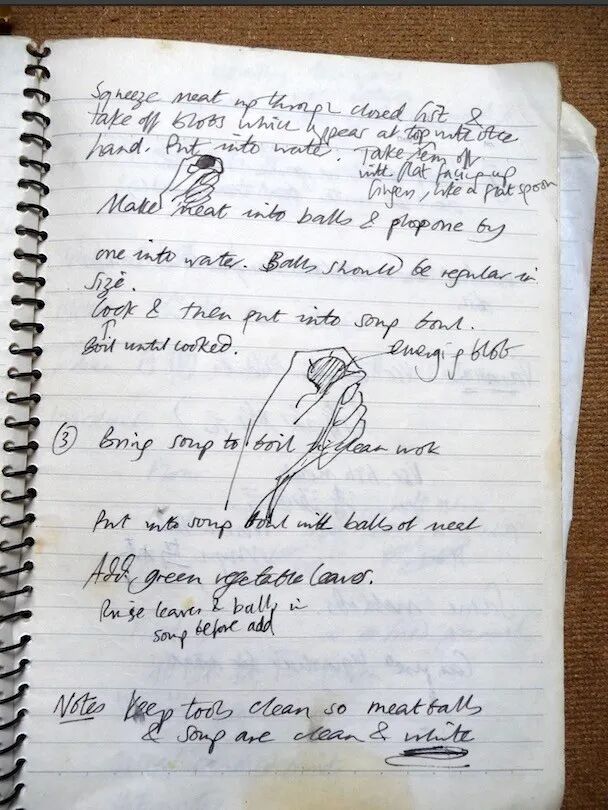 Squeeze meat up through closed fist &
take off blobs which appear at top with other
hand. Put into water. Take them off
with flat facing up
fingers, like a flat spoon
Make meat into balls & plop one by
one into water. Balls should be regular in
size.
Cook & then put into soup bowl.
Boil until cooked.
emerging blob
③ Bring soup to boil in clean wok
Put into soup bowl with balls of meat
Add green vegetable leaves.
Rinse leaves & balls in
soup before add
Notes Keep tools clean so meatballs
& soup are clean & white